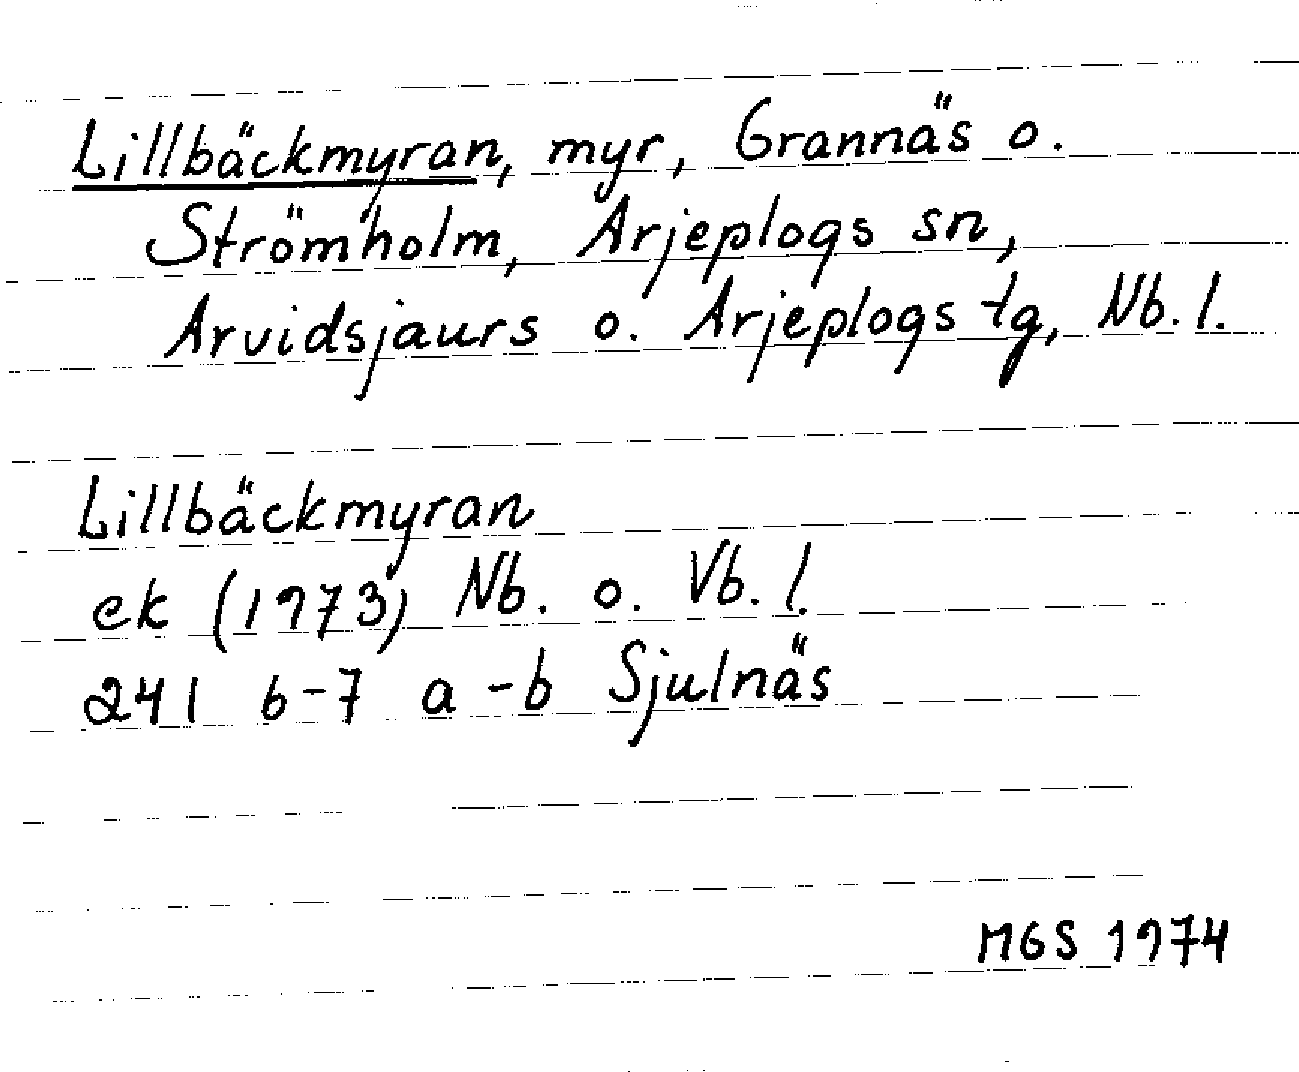 Lillbäckmyran, myr, Grannäs o.
Strömholm, Arjeplogs sn,
Arvidsjaurs o. Arjeplogs tg, Nb. l.
Lillbäckmyran
ek (1973) Nb. o. Vb. l.
241 6-7 a-b Sjulnäs
MGS 1974